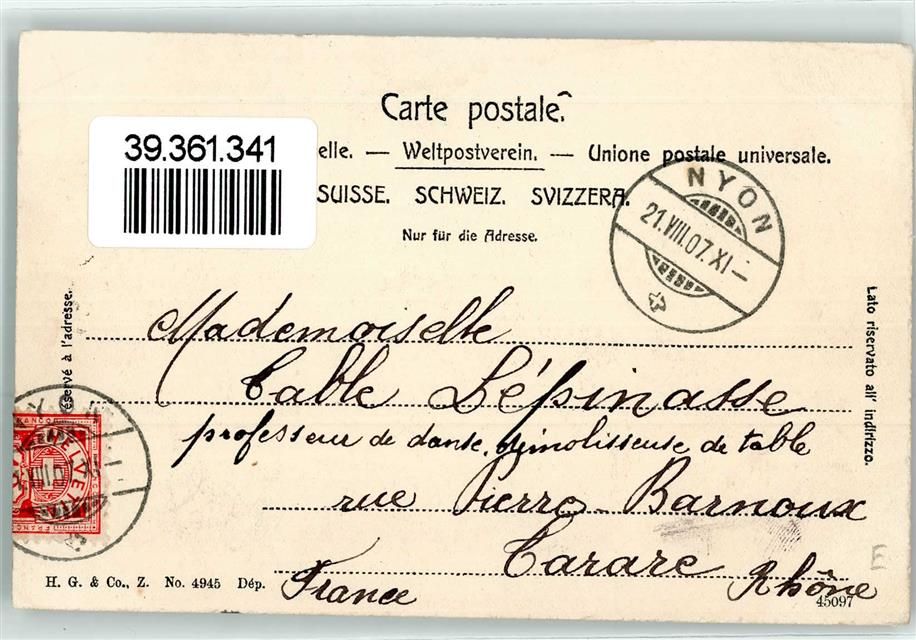 Carte postale.
39.361.341
elle. — Weltpostverein. — Unione postale universale.
SUISSE. SCHWEIZ. SVIZZERA.
Nur für die Adresse.
NYON
21.VIII.07.XI–
réservé à l'adresse.
Lato riservato all' indirizzo.
Mademoiselle
Table Lépinasse
professeur de danse, démolisseuse de table
rue Pierre Barnoux
Tarare
France Rhône
HELVETIA
FRANCO
H. G. & Co., Z. No. 4945 Dép.
45097
E